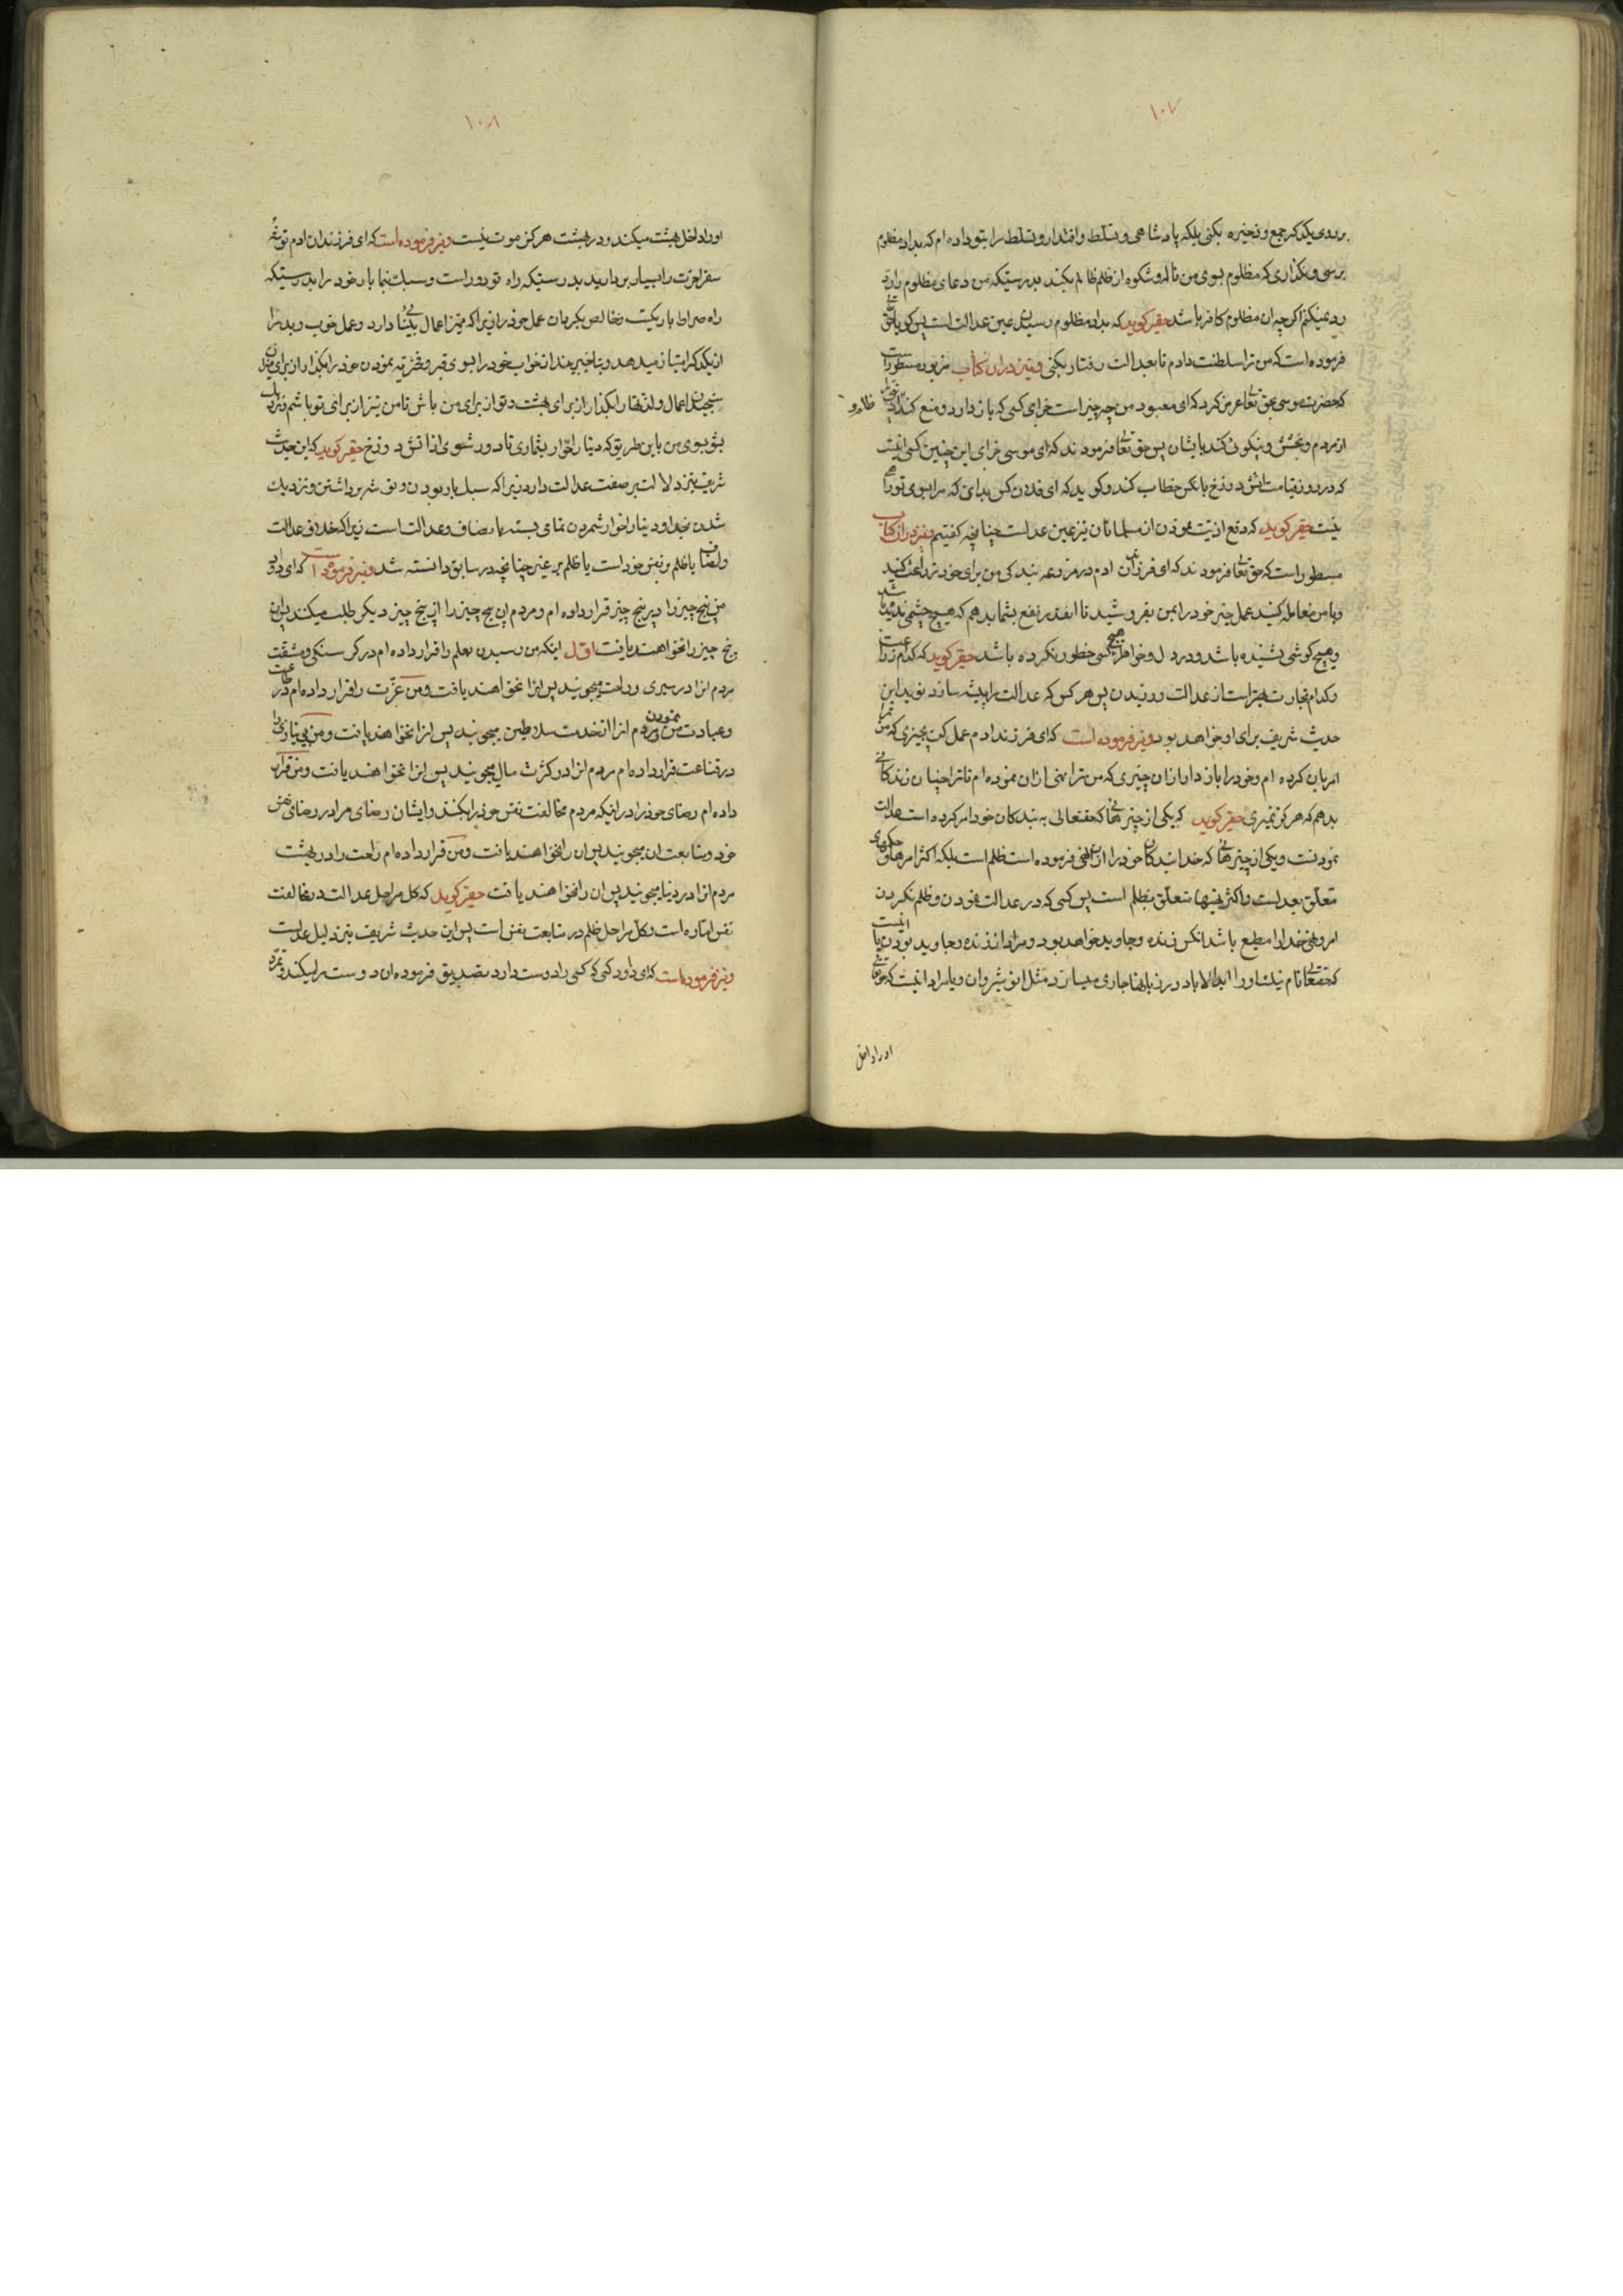 ۱۰۷
بر روی یکدیگر جمع و ذخیره بکنی بلکه پادشاهی و تسلط و اقتدار و تسلط را بتو داده ام که بداد مظلوم
برسی و نگذاری که مظلوم بسوی من ناله و شکوه از ظلم ظالم بکند بدرستیکه من دعای مظلوم را رد
رد نمیکنم اگر چه ان مظلوم کافر باشد حقیر کوید که بداد مظلوم رسیدن عین عدالت است پس کویا حق تعالی
فرموده است که من ترا سلطنت دادم تا بعدالت رفتار بکنی و نیز در ان کتاب مزبور مسطور است
که حضرت موسی بحق تعالی عرض کرد که ای معبود من چه چیز است جزای کسی که باز دارد و منع کند
از مردم و بخشش و نیکوئی کند بایشان پس حق تعالی فرمودند که ای موسی جزای این چنین کسی اینست
که در روز قیامت اتش دوزخ بانکس خطاب کند و کوید که ای فلان کس بدان که مرا بسوی تو راهی
نیست حقیر کوید که دفع اذیت نمودن از مسلمانان نیز عین عدالست چنانچه کفتیم و نیز در ان کتاب
مسطور است که حق تعالی فرمودند که ای فرزندان ادم در مزرعه بندکی من برای خود زراعت کنید
و با من معامله کنید عمل خیر خود را بمن بفروشید تا انقدر نفع بشما بدهم که هیچ چشمی ندیده باشد
و هیچ کوشی نشنیده باشد و در دل و خواطر هیچ کسی خطور نکرده باشد حقیر کوید که کدام زراعت
و کدام تجارت بهتر است از عدالت ورزیدن پس هر کس که عدالت را پیشه سازد نوید این
حدیث شریف برای او خواهد بود و نیز فرموده است که ای فرزند ادم عمل کن بچیزی که من ترا
امر بان کرده ام و خود را باز دار از ان چیزی که من ترا نهی از ان نموده ام تا ترا چنان زندکانی
بدهم که هرکز نمیری حقیر کوید که یکی از چیزهائی که حقتعالی به بندکان خود امر کرده است عدالت
نمودنست و یکی از چیزهائی که خدا بندکان خود را از ان نهی فرموده است ظلم است بلکه اکثر امرهای
متعلق بعدلست و اکثر نهیها متعلق بظلم است پس کسی که در عدالت نمودن و ظلم نکردن
امر و نهی خدا را مطیع باشد انکس زنده و جاوید خواهد بود و مراد از زنده و جاوید بودن یا اینست
که حقتعالی نام نیک او را ابدالاباد در زبانها جاری میسازد مثل انوشیروان و یا مراد اینست که حقتعالی
او را داخل
۱۰۸
او را داخل بهشت میکند و در بهشت هرکز موت نیست و نیز فرموده است که ای فرزندان ادم توشهٔ
سفر اخرت را بسیار بردارید بدرستیکه راه تو دور است و سبک نما بار خود را بدرستیکه
راه صراط باریکست و خالص بکردان عمل خود را زیرا که ممیز اعمال بینا دارد و عمل خوب و بد را
از یکدیگر امتیاز میدهد و بتاخیر بینداز خواب خود را بسوی قبر و فخریه نمودن خود را بکذار از برای میزان
سنجیدن اعمال و لذتها را بکذار از برای بهشت و تو از برای من باش تا من نیز از برای تو باشم و نزدیک
بشو بسوی من باین طریق که دینا را خوار بشماری تا دور شوی از اتش دوزخ حقیر کوید که این حدیث
شریف نیز دلالت بر صفت عدالت دارد زیرا که سبک بار بودن و توشه برداشتن و نزدیک
شدن بخدا و دینا را خوار شمردن تمامی بسته بانصاف و عدالت است زیرا که خلاف عدالت
و انصاف یا ظلم بر نفس خود است یا ظلم بر غیر چنانچه در سابق دانسته شد و نیز فرموده است که ای داود
من پنج چیز را در پنج چیز قرار داده ام و مردم ان پنج چیز را از پنج چیز دیکر طلب میکنند پس ان
پنج چیز را نخواهند یافت اول اینکه من رسیدن بعلم را قرار داده ام در کرسنکی و مشقت
مردم انرا در سیری و راحت میجویند پس انرا نخواهند یافت و من عزت را قرار داده ام در طاعت
و عبادت من نمودن و مردم انرا از خدمت سلاطین میجویند پس انرا نخواهند یافت و من بی نیازی را
در قناعت قرار داده ام مردم انرا در کثرت مال میجویند پس انرا نخواهند یافت و من قرار
داده ام رضای خود را در اینکه مردم مخالفت نفس خود را بکنند و ایشان رضای مرا در رضای نفس
خود و متابعت ان میجویند پس ان را نخواهند یافت و من قرار داده ام راحت را در بهشت
مردم انرا در دنیا میجویند پس ان را نخواهند یافت حقیر کوید که کل مراحل عدالت در مخالفت
نفس اماره است و کل مراحل ظلم در متابعت نفس است پس این حدیث شریف نیز دلیل عدلست
و نیز فرموده است که ای داود کسی که کسی را دوست دارد تصدیق فرموده ان دوست را میکند